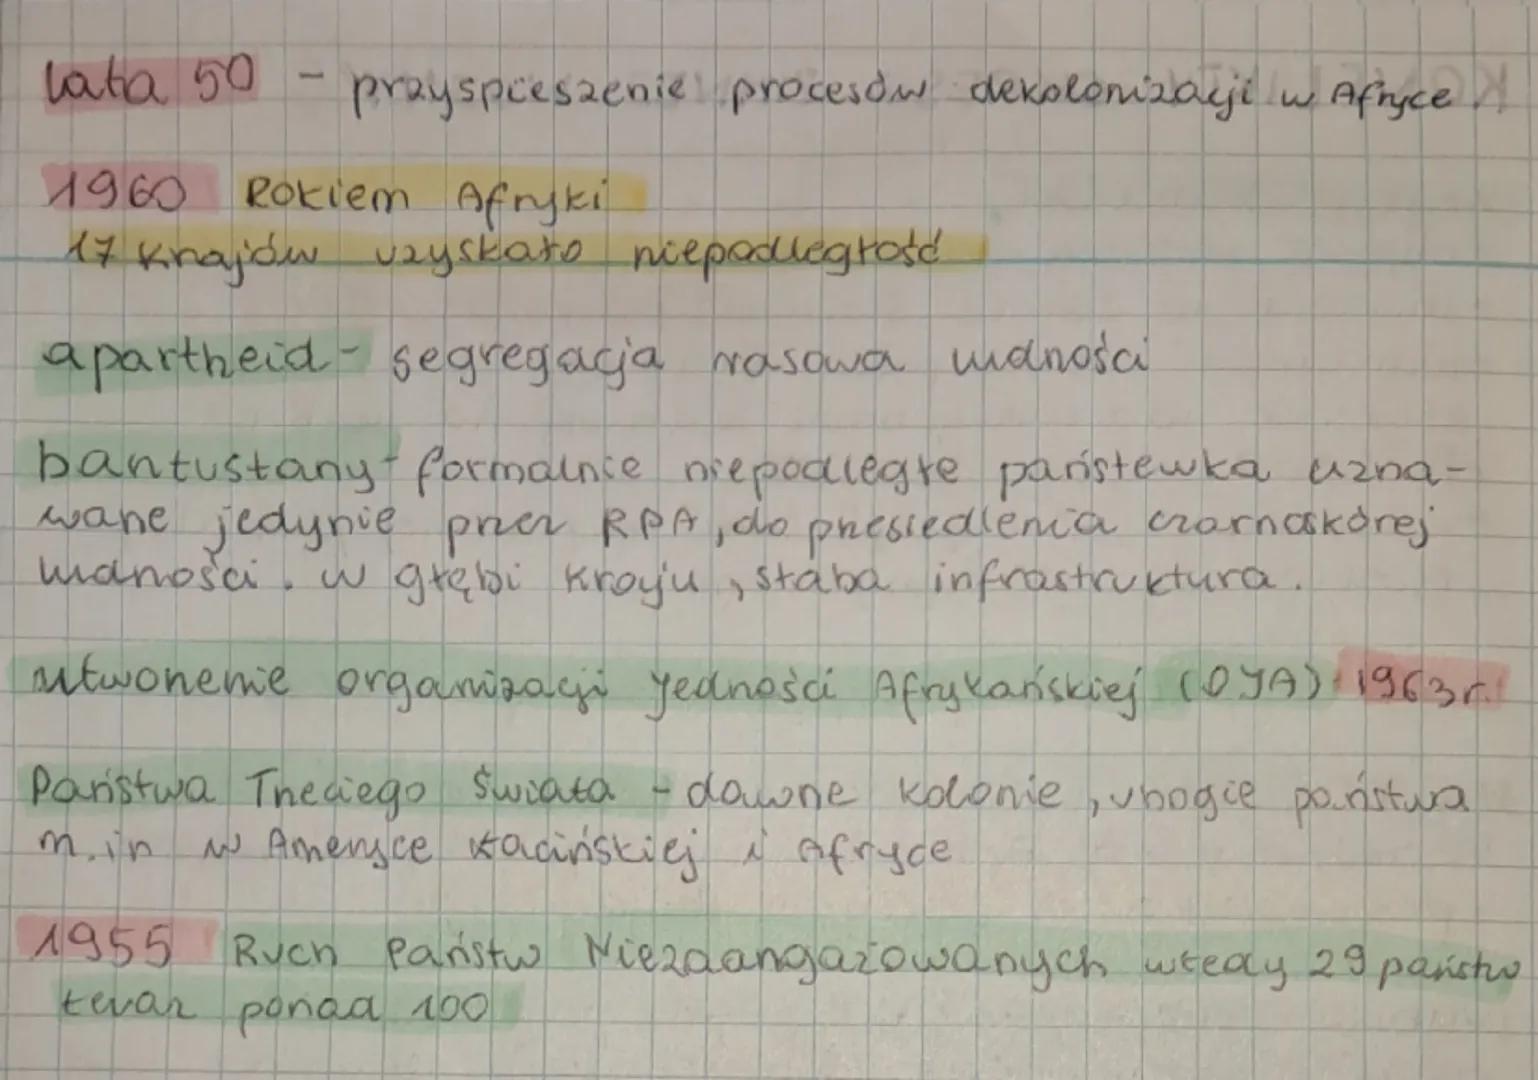 lata 50 - przyspieszenie procesów dekolonizacji w Afryce
1960 Rokiem Afryki
17 krajów uzyskało niepodległość
apartheid - segregacja rasowa ludności
bantustany - formalnie niepodległe państewka uzna-
wane jedynie przez RPA, do przesiedlenia czarnoskórej
ludności. w głębi kraju, słaba infrastruktura.
utworzenie organizacji Jedności Afrykańskiej (OJA) 1963r.
Państwa Trzeciego Świata - dawne kolonie, ubogie państwa
m.in w Ameryce Łacińskiej i Afryce
1955 Ruch Państw Niezaangażowanych wtedy 29 państw
teraz ponad 100